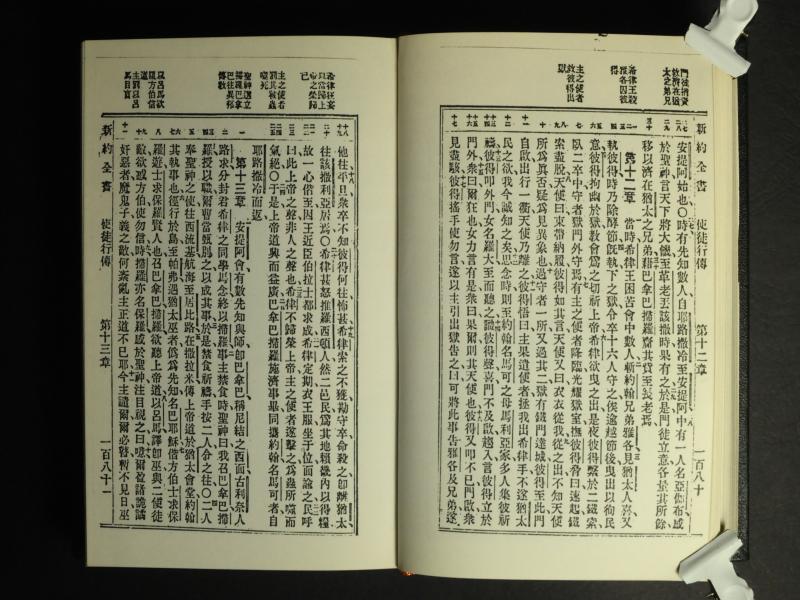 新約全書
使徒行傳
第十二章
一百八十
門徒捐資
欲濟在猶
太之弟兄
希律王殺
雅各囚彼
得
主之使者
救彼得出
獄
安提阿始也〇時有先知數人自耶路撒冷至安提阿中有一人名亞伽布感
於聖神言天下將大饑至革老丟該撒時果有之於是門徒立意各量其所餘
移以濟在猶太之兄弟藉巴拿巴掃羅齎其貲至長老焉
第十二章 當時希律王困苦會中數人斬約翰兄弟雅各見猶太人喜又
執彼得時乃除酵節旣執下之獄令卒十六人守之俟逾越節後曳出以徇民
意彼得拘幽於獄教會爲之切祈上帝希律欲曳之出是夜彼得繫於二鐵索
臥二卒中守者獄門外守焉有主之使者降臨光耀獄室撫彼得脅曰速起鐵
索盡脫天使曰束帶納履彼得如其言天使又曰衣衣從我從之出不知天使
所爲眞否疑爲見異象也過守者一所又過其二獄有鐵門達城彼得至此門
自啟出行一衢天使乃離之彼得悟曰主果遣使者拯我出希律手不遂猶太
民之欲我今誠知之矣思念時則至約翰名馬可之母馬利亞家多人集彼祈
禱彼得叩外門女名羅大至而聽之識彼得聲喜門不及啟趨入言彼得立於
門外衆曰爾狂也女力言有是衆曰果爾則其天使也彼得又叩不已門啟衆
見盡駭彼得搖手使勿言遂以主引出獄告之曰可將此事告雅各及兄弟遂
新約全書
使徒行傳
第十三章
一百八十一
希律狂妄
以當歸上
帝之榮歸
己
主之使者
罰其被蟲
噬死
聖神選立
掃羅巴拿
巴往異邦
傳教
以呂馬欲
阻方伯信
道
主罰以呂
馬目盲
他往平旦衆卒不知彼得何往怖甚希律索之不獲勘守卒命殺之卽離猶太
往該撒利亞居焉〇希律甚怒推羅西頓人然二邑民爲其地賴畿內以得糧
故一心偕至因王近臣伯拉士都求成希律定期衣王服坐于位而諭之民呼
曰此上帝之聲非人之聲也希律不歸榮上帝主之使者遂擊之爲蟲所噬而
氣絕〇于是上帝道興而益廣巴拿巴掃羅施濟事畢同攜約翰名馬可者自
耶路撒冷而返
第十三章 安提阿會有數先知與師卽巴拿巴稱尼結之西面古利奈人
路求分封君希律之同學馬念終以掃羅事主禁食時聖神曰我召巴拿巴掃
羅授以職爾曹當甄別之以成其事於是禁食祈禱手按二人令之往〇二人
奉聖神之使往西流基航海到居比路在撒拉米傳上帝道於猶太會堂約翰
其執事也徑行於島至帕弗遇猶太巫者僞爲先知名巴耶穌偕方伯士求保
羅遊士求保羅賢人也召巴拿巴掃羅欲聽上帝道以呂馬譯卽巫與二使徒
敵欲惑方伯使勿信時掃羅亦名保羅感於聖神注目視之曰噫爾盈諸詭譎
奸惡者魔鬼子義之敵何紊亂主正道不已耶今主譴爾爾必瞽暫不見日巫